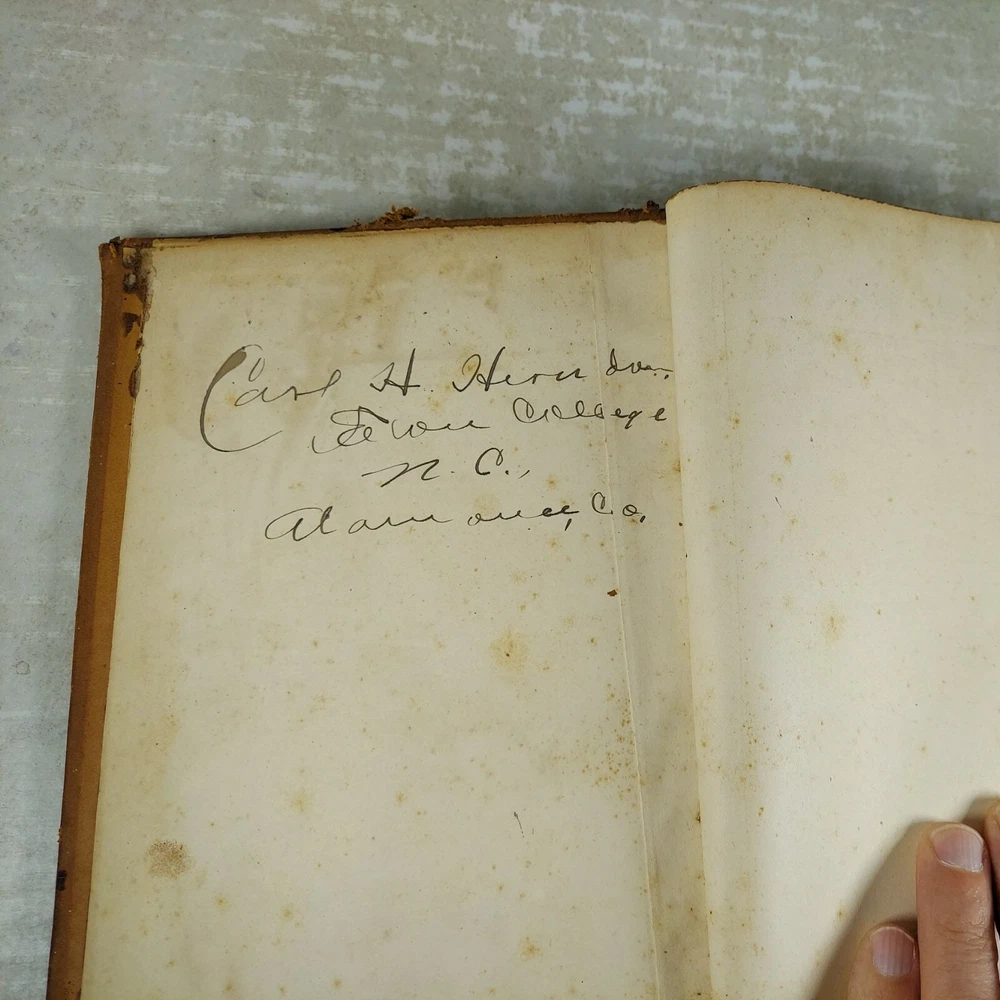 Carl H. Herndon,
Elon College
N. C.,
Alamance, Co.